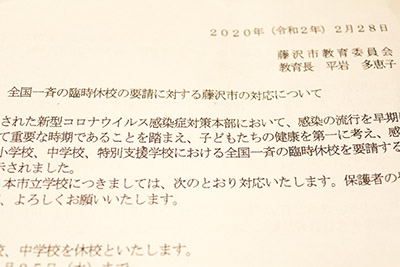 2020年(令和2年) 2月28日
藤沢市教育委員会
教育長 平岩 多恵子
全国一斉の臨時休校の要請に対する藤沢市の対応について
された新型コロナウイルス感染症対策本部において、感染の流行を早期
て重要な時期であることを踏まえ、子どもたちの健康を第一に考え、感
小学校、中学校、特別支援学校における全国一斉の臨時休校を要請する
示されました。
本市立学校につきましては、次のとおり対応いたします。保護者の
、よろしくお願いいたします。
校、中学校を休校といたします。